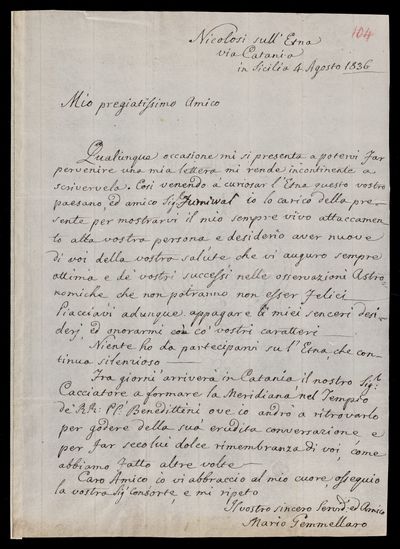 104
Nicolosi sull'Etna
via Catania
in Sicilia 4 Agosto 1836
Mio pregiatissimo Amico
Qualunque occasione mi si presenta a potervi far
pervenire una mia lettera mi rende incontinente a
scrivervela. Così venendo a curiosar l'Etna questo vostro
paesano, ed amico Sig.r io lo carico della pre-
sente per mostrarvi il mio sempre vivo attaccamen-
to alla vostra persona e desiderio aver nuove
di voi della vostra salute che vi auguro sempre
ottima e de' vostri successi nelle osservazioni Astro-
nomiche che non potranno non esser felici
Piacciavi adunque appagare li miei senceri desi-
derj, ed onorarmi co' vostri caratteri
Niente ho da parteciparvi su l'Etna che con-
tinua silenzioso
Fra giorni arriverà in Catania il nostro Sig.r
Cacciatore a formare la Meridiana nel Tempio
de' R.R: P.P. Benedittini ove io andrò a ritrovarlo
per godere della sua erudita conversazione e
per far secolui dolce rimembranza di voi come
abbiamo fatto altre volte
Caro Amico io vi abbraccio al mio cuore, ossequio
la vostra Sig.a Consorte, e mi ripeto
Il vostro sincero Servid.r ed Amico
Mario Gemmellaro